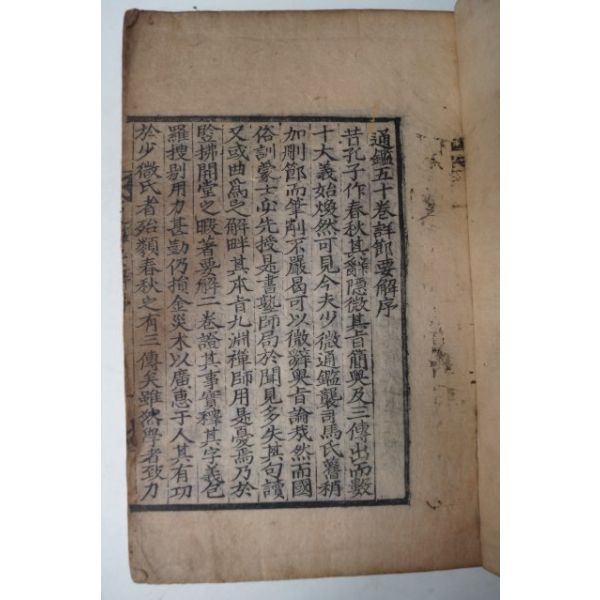 通鑑五十卷詳節要解序
昔孔子作春秋其辭隱微其旨簡奧及三傳出而數
十大義始煥然可見今夫少微通鑑襲司馬氏舊稍
加刪節而筆削不嚴曷可以微辭奧旨論哉然而國
俗訓蒙士必先授是書塾師局於聞見多失其句讀
又或曲爲之解畔其本旨九淵禪師用是憂焉乃於
竪拂開堂之暇著要解二卷證其事實釋其字義包
羅搜剔用力甚勤仍捐金災木以廣惠于人其有功
於少微氏者殆類春秋之有三傳矣雖然學者致力